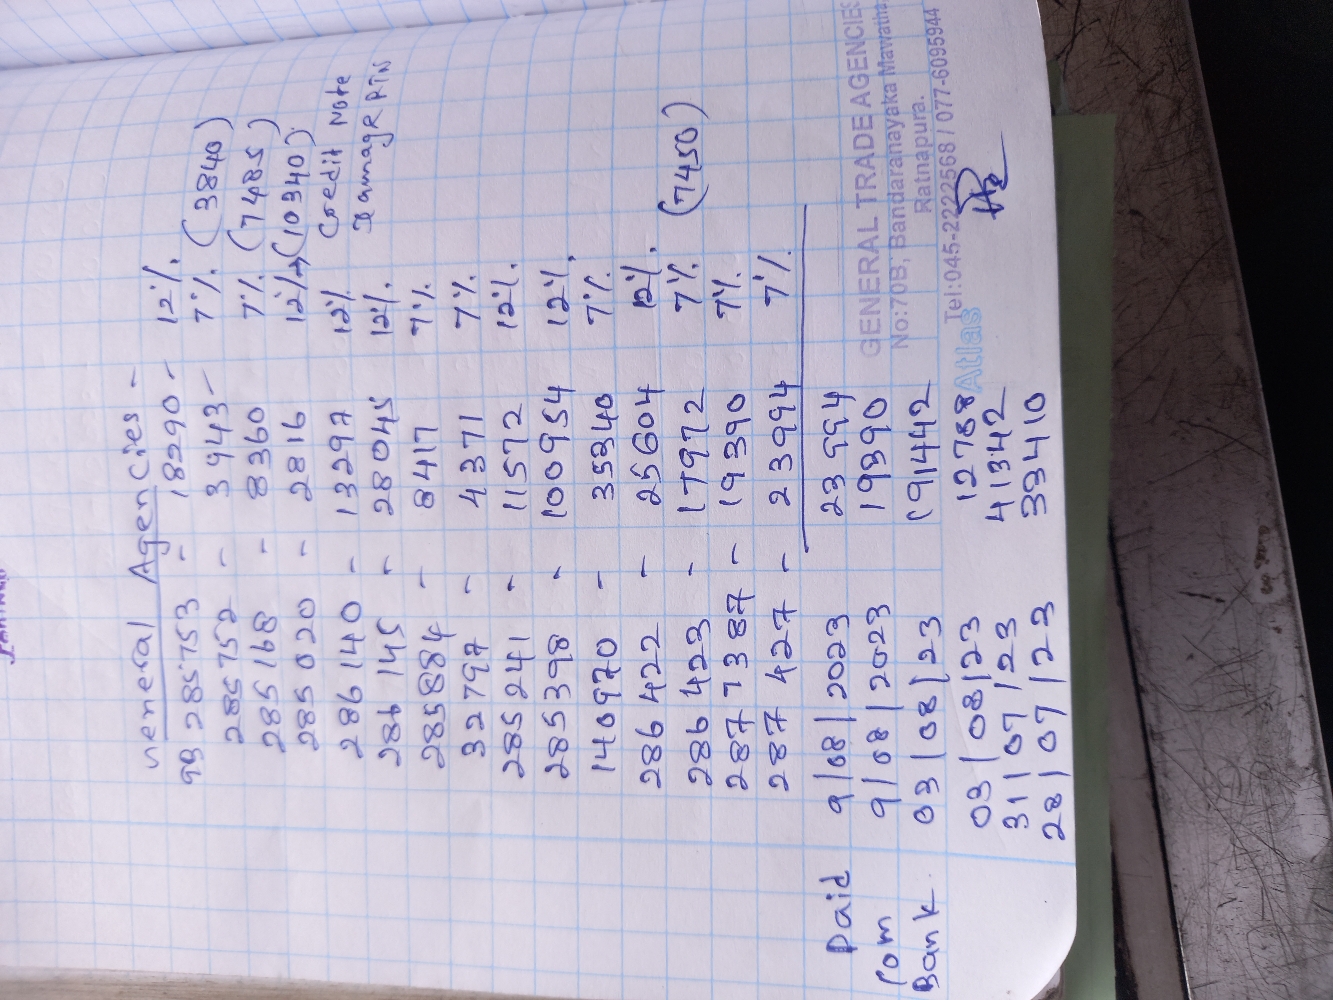 General Agencies -
99 285753 - 18290 - 12%
285752 - 3943 - 7% (3840)
285168 - 8360 7% (7485)
285020 - 2816 12%→(10340)
286140 - 13297 12% Credit Note
286145 - 28045 12% Damage RTN
285884 - 8417 7%
32797 - 4371 7%
285241 - 11572 12%
285398 - 100954 12%
140970 - 35340 7%
286422 - 25604 12%
286423 - 17972 7% (7450)
287387 - 19390 7%
287427 - 23994 7%
Paid 9/08/2023 23994
Com 9/08/2023 19390
Bank 03/08/23 191442
03/08/23 12788
31/07/23 41342
28/07/23 39410
GENERAL TRADE AGENCIES
No:70B, Bandaranayaka Mawatha,
Ratnapura.
Tel:045-2222568 / 077-6095944
Atlas